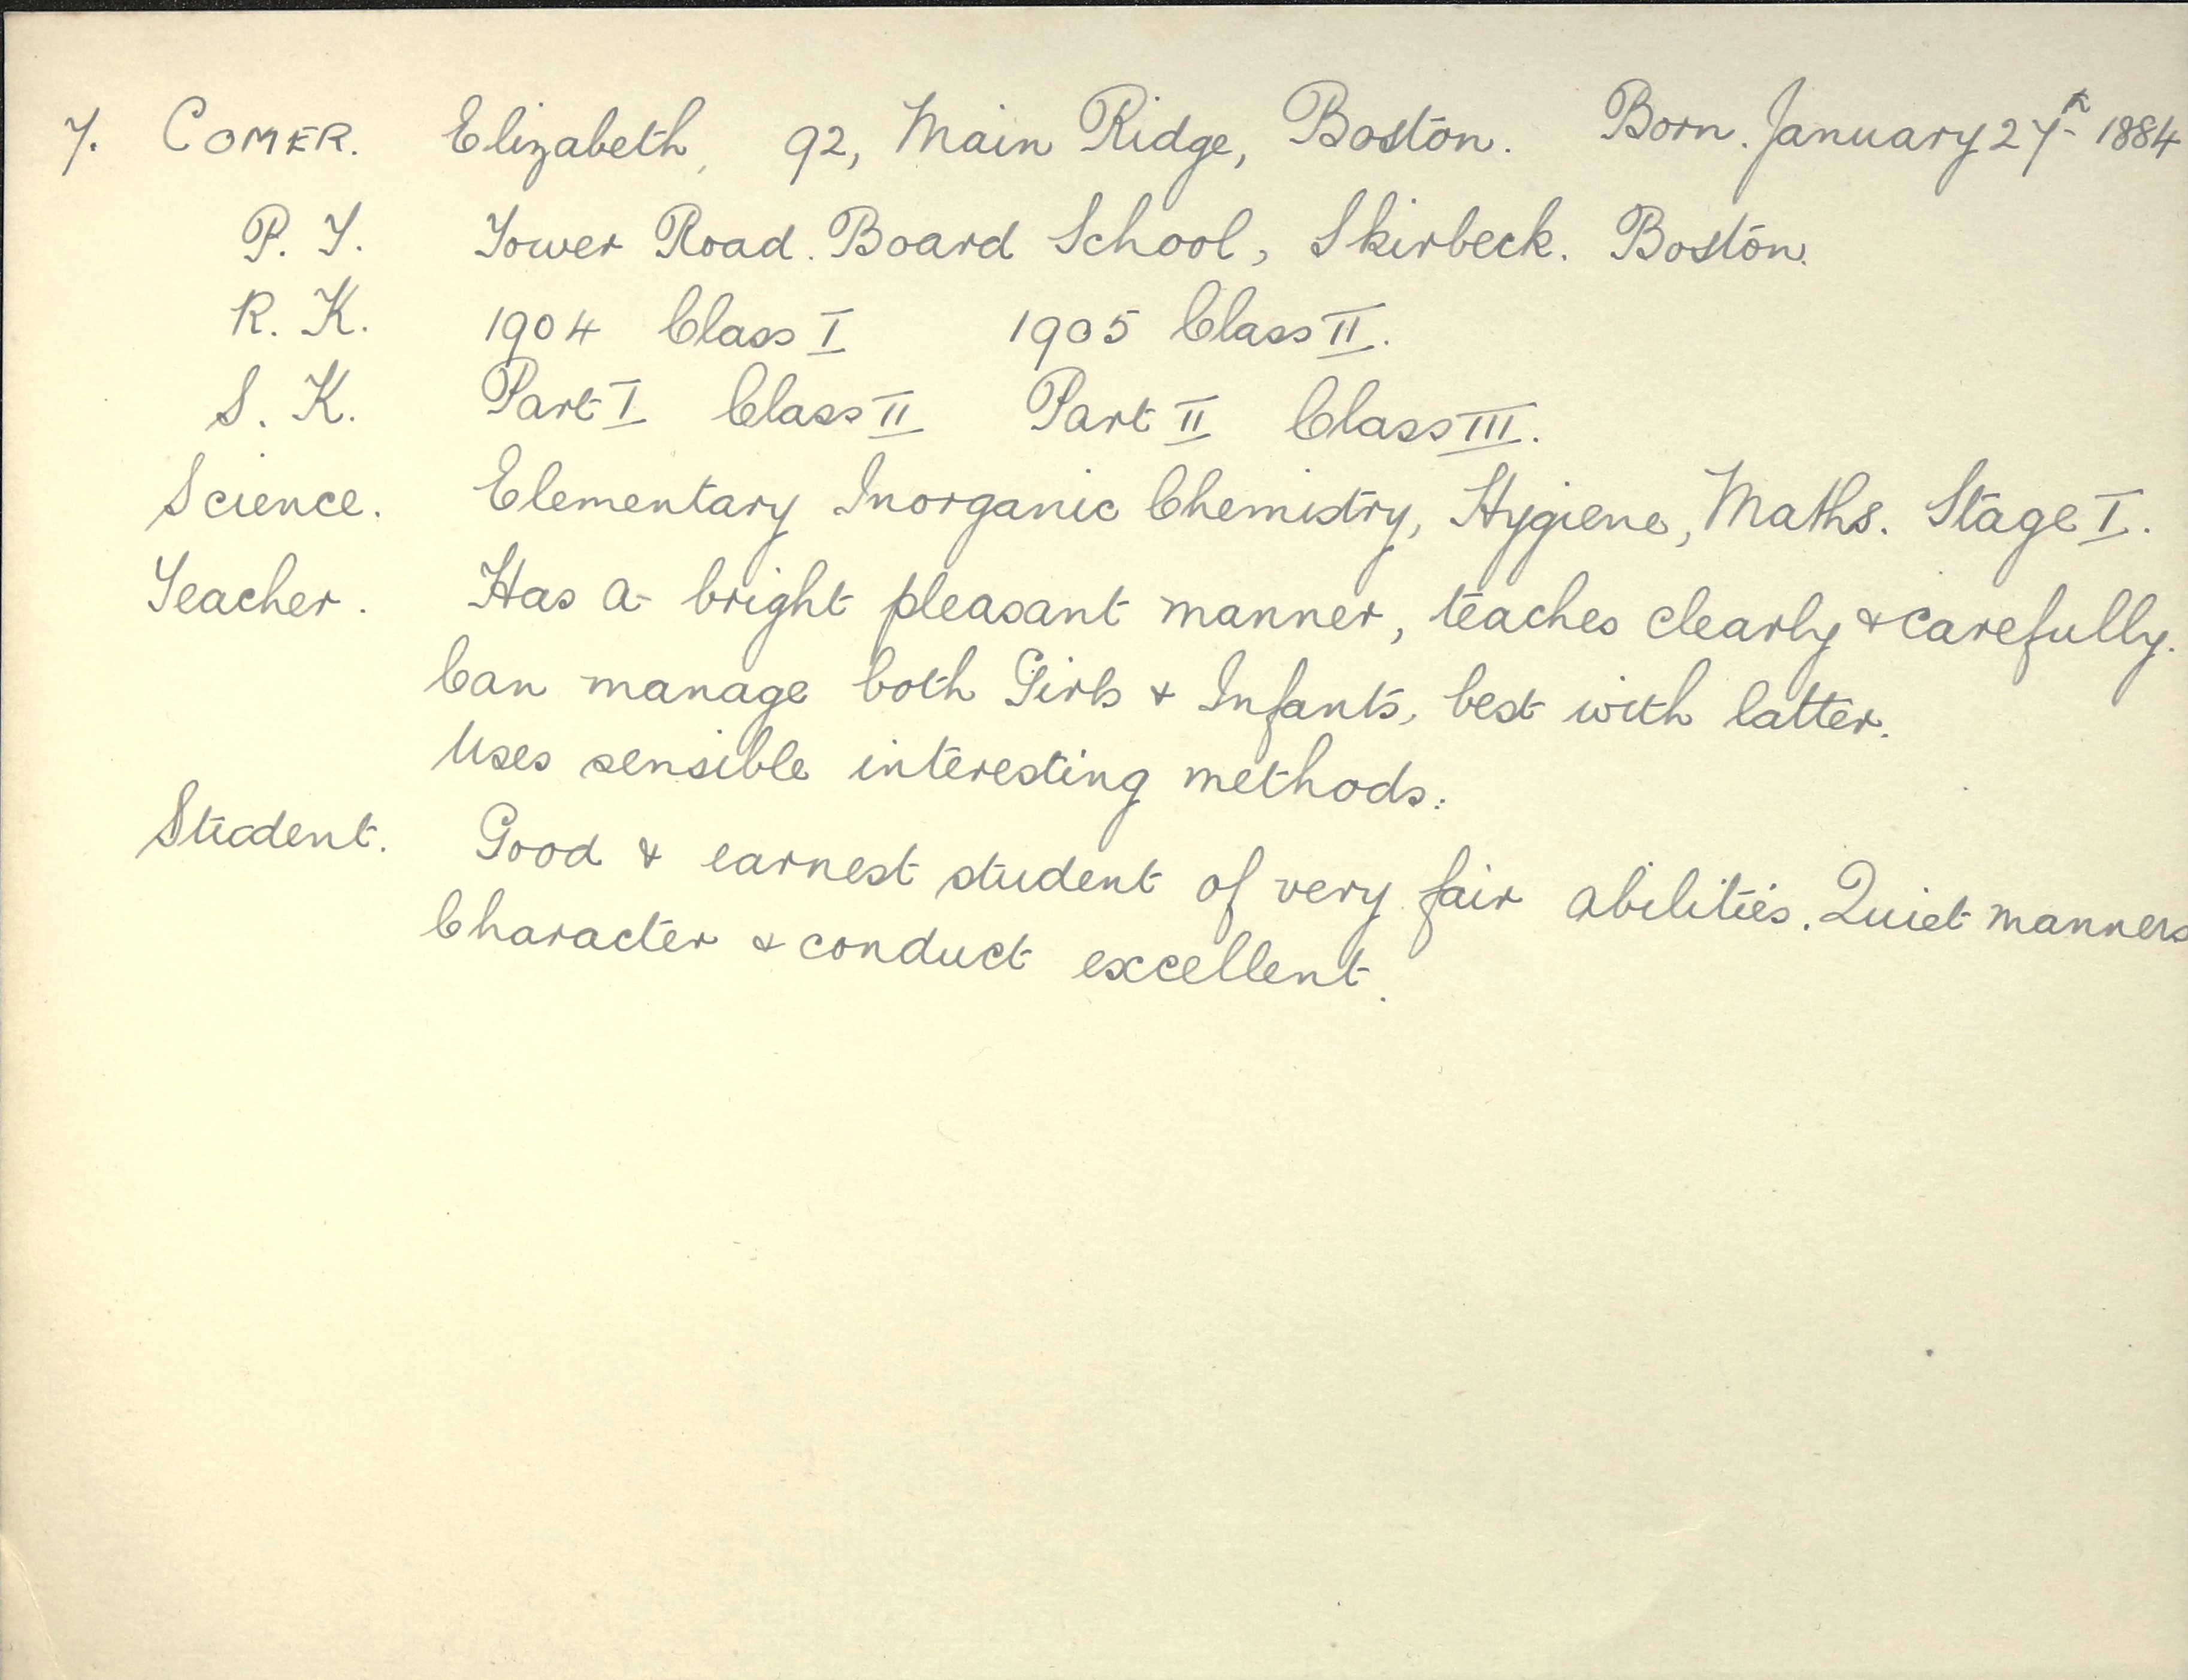 7. COMER. Elizabeth, 92, Main Ridge, Boston. Born. January 27th 1884
P. T. Tower Road. Board School, Skirbeck. Boston.
R. K. 1904 Class I 1905 Class II.
S. K. Part I Class II Part II Class III.
Science. Elementary Inorganic Chemistry, Hygiene, Maths. Stage I.
Teacher. Has a bright pleasant manner, teaches clearly & carefully.
Can manage both Girls & Infants, best with latter.
Uses sensible interesting methods.
Student. Good & earnest student of very fair abilities. Quiet manners
Character & conduct excellent.